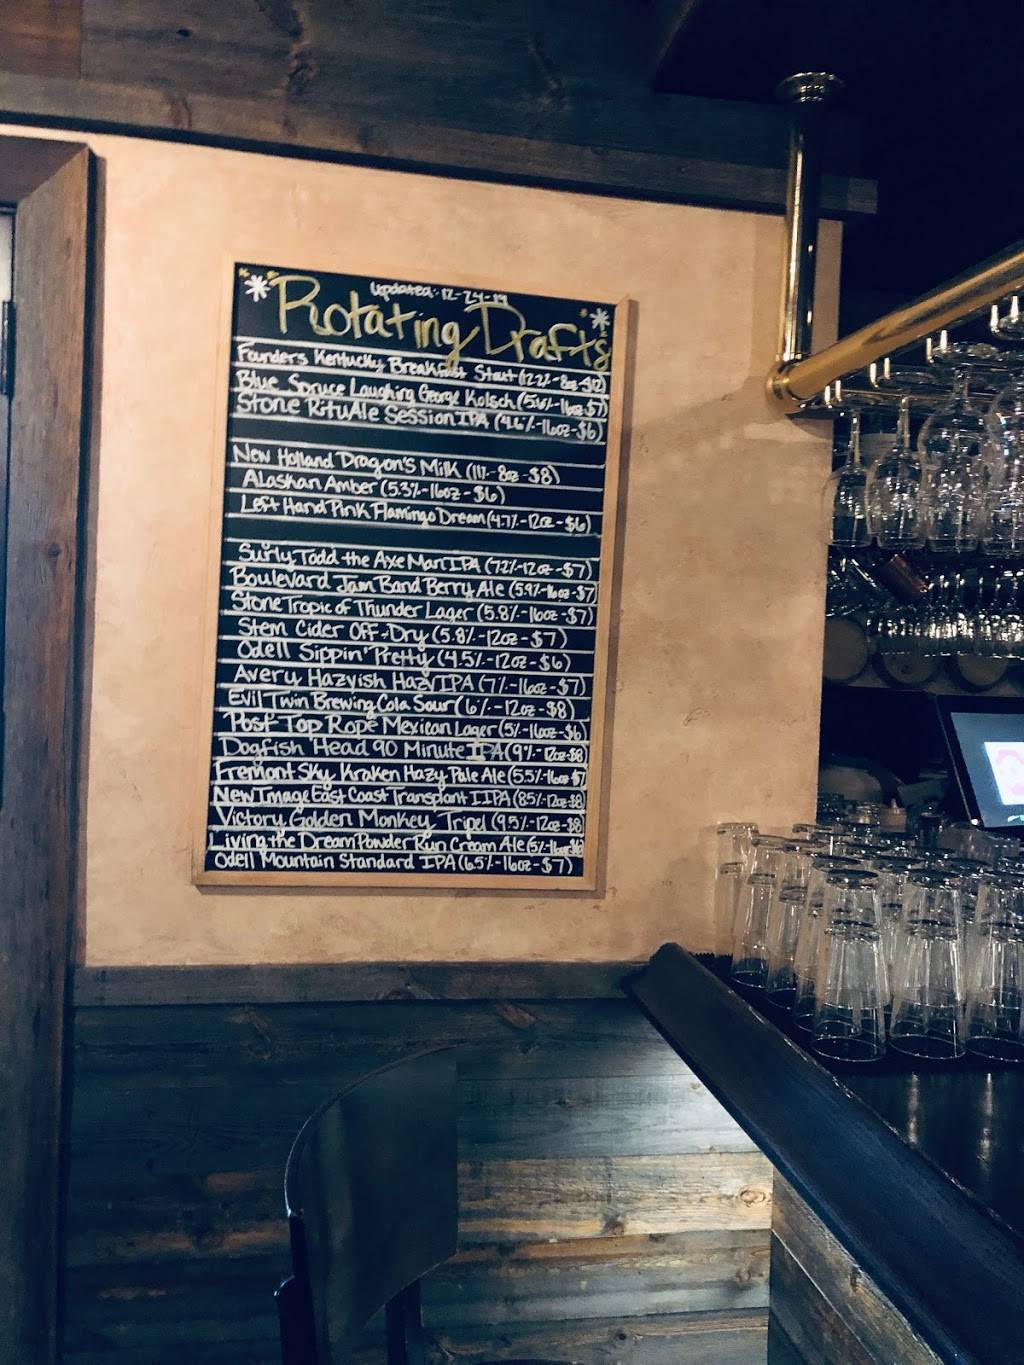 Updated: 12-24-19
Rotating Drafts
Founders Kentucky Breakfast Stout (12.2%-8oz-$12)
Blue Spruce Laughing George Kolsch (5.6%-16oz-$7)
Stone RituAle Session IPA (4.6%-16oz-$6)
New Holland Dragon's Milk (11%-8oz-$8)
Alaskan Amber (5.3%-16oz-$6)
Left Hand Pink Flamingo Dream (4.7%-12oz-$6)
Surly Todd the Axe Man IPA (7.2%-12oz-$7)
Boulevard Jam Band Berry Ale (5.9%-16oz-$7)
Stone Tropic of Thunder Lager (5.8%-16oz-$7)
Stem Cider Off-Dry (5.8%-12oz-$7)
Odell Sippin' Pretty (4.5%-12oz-$6)
Avery Hazyish Hazy IPA (7%-16oz-$7)
Evil Twin Brewing Cola Sour (6%-12oz-$8)
Post Top Rope Mexican Lager (5%-16oz-$6)
Dogfish Head 90 Minute IPA (9%-12oz-$8)
Fremont Sky Kraken Hazy Pale Ale (5.5%-16oz-$7)
New Image East Coast Transplant IIPA (8.5%-12oz-$8)
Victory Golden Monkey Tripel (9.5%-12oz-$8)
Living the Dream Powder Run Cream Ale (5%-16oz-$6)
Odell Mountain Standard IPA (6.5%-16oz-$7)